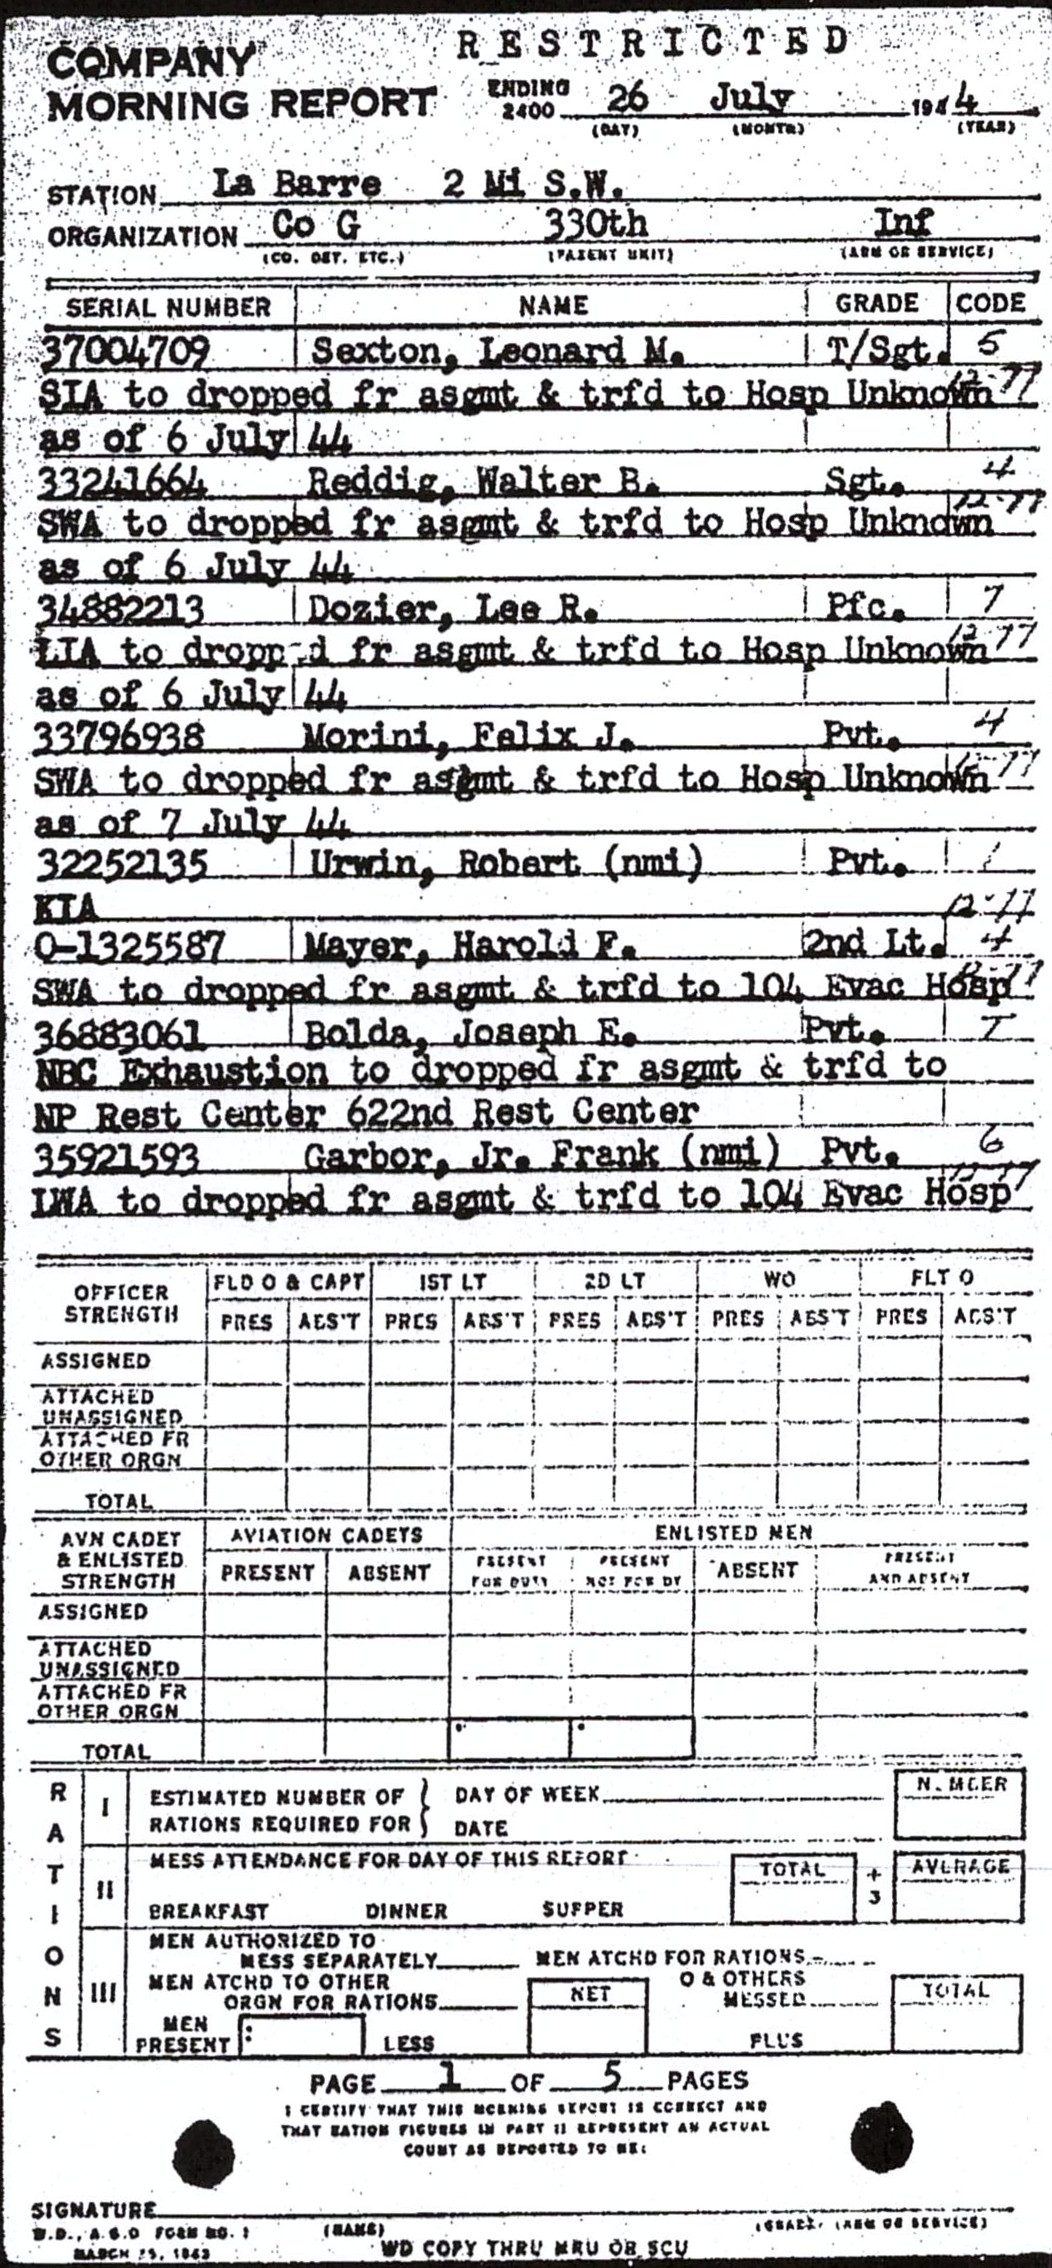 RESTRICTED
COMPANY
MORNING REPORT
ENDING 2400 26 July 1944
(DAY) (MONTH) (YEAR)
STATION La Barre 2 Mi S.W.
ORGANIZATION Co G 330th Inf
(CO. DET. ETC.) (PARENT UNIT) (ARM OR SERVICE)
SERIAL NUMBER NAME GRADE CODE
37004709 Sexton, Leonard M. T/Sgt. 5
SIA to dropped fr asgmt & trfd to Hosp Unknown 12-77
as of 6 July 44
33241664 Reddig, Walter B. Sgt. 4
SWA to dropped fr asgmt & trfd to Hosp Unknown 12-77
as of 6 July 44
34882213 Dozier, Lee R. Pfc. 7
LIA to dropp-d fr asgmt & trfd to Hosp Unknown 12-77
as of 6 July 44
33796938 Morini, Felix J. Pvt. 4
SWA to dropped fr asgmt & trfd to Hosp Unknown
as of 7 July 44
32252135 Urwin, Robert (nmi) Pvt. 1
KIA 12-77
O-1325587 Mayer, Harold F. 2nd Lt. 4
SWA to dropped fr asgmt & trfd to 104 Evac Hosp
36883061 Bolda, Joseph E. Pvt.
NBC Exhaustion to dropped fr asgmt & trfd to
NP Rest Center 622nd Rest Center
35921593 Garbor, Jr. Frank (nmi) Pvt. 6
LWA to dropped fr asgmt & trfd to 104 Evac Hosp
OFFICER STRENGTH FLD O & CAPT 1ST LT 2D LT WO FLT O
PRES ABS'T PRES ABS'T PRES ABS'T PRES ABS'T PRES ABS'T
ASSIGNED
ATTACHED UNASSIGNED
ATTACHED FR OTHER ORGN
TOTAL
AVN CADET & ENLISTED STRENGTH AVIATION CADETS ENLISTED MEN
PRESENT ABSENT PRESENT FOR DUTY PRESENT NOT FOR DY ABSENT PRESENT AND ABSENT
ASSIGNED
ATTACHED UNASSIGNED
ATTACHED FR OTHER ORGN
TOTAL
RATIONS
I ESTIMATED NUMBER OF RATIONS REQUIRED FOR DAY OF WEEK NUMBER
DATE
II MESS ATTENDANCE FOR DAY OF THIS REPORT TOTAL ÷ 3 AVERAGE
BREAKFAST DINNER SUPPER
III MEN AUTHORIZED TO MESS SEPARATELY MEN ATCHD FOR RATIONS
MEN ATCHD TO OTHER ORGN FOR RATIONS NET O & OTHERS MESSED TOTAL
MEN PRESENT LESS PLUS
PAGE 1 OF 5 PAGES
I CERTIFY THAT THIS MORNING REPORT IS CORRECT AND
THAT RATION FIGURES IN PART II REPRESENT AN ACTUAL
COUNT AS REPORTED TO ME:
SIGNATURE
W.D., A.G.O. FORM NO. 1 (NAME) (GRADE) (ARM OR SERVICE)
MARCH 15, 1943 WD COPY THRU MRU OR SCU